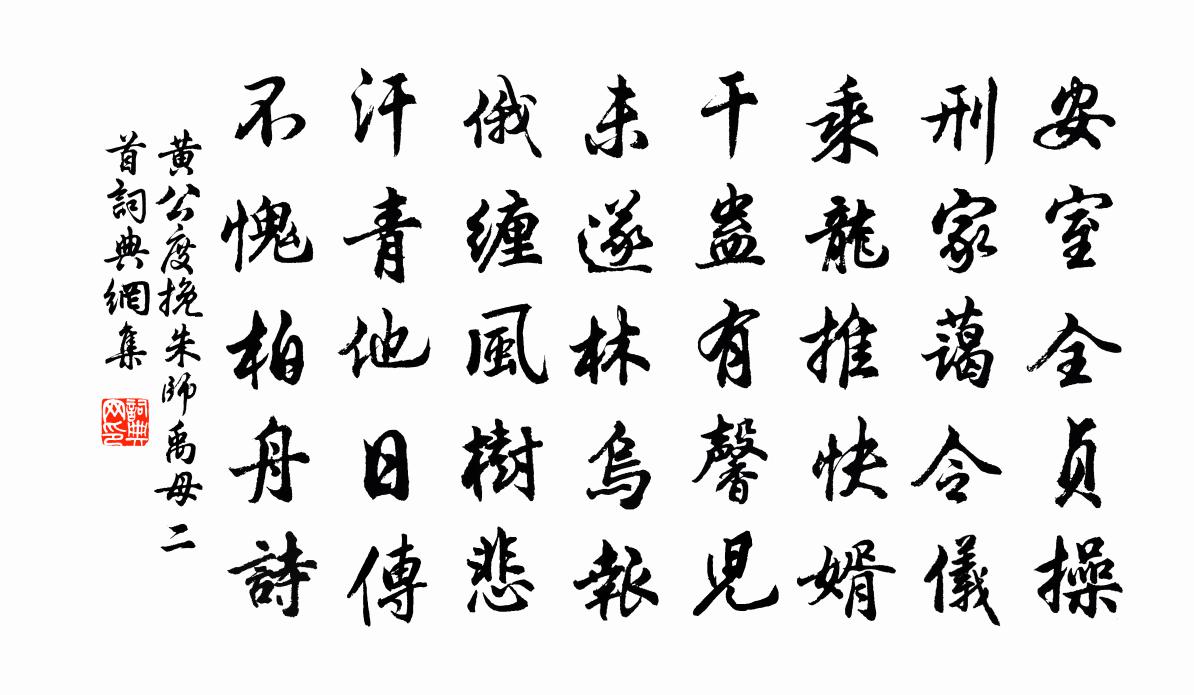 安室全貞操
刑家藹令儀
乘龍推快婿
干蠱有馨児
未遂林烏報
俄纏風樹悲
汗青他日傳
不愧柏舟詩
黃公度挽朱師禹母二
首詞典網集
詞典
网印